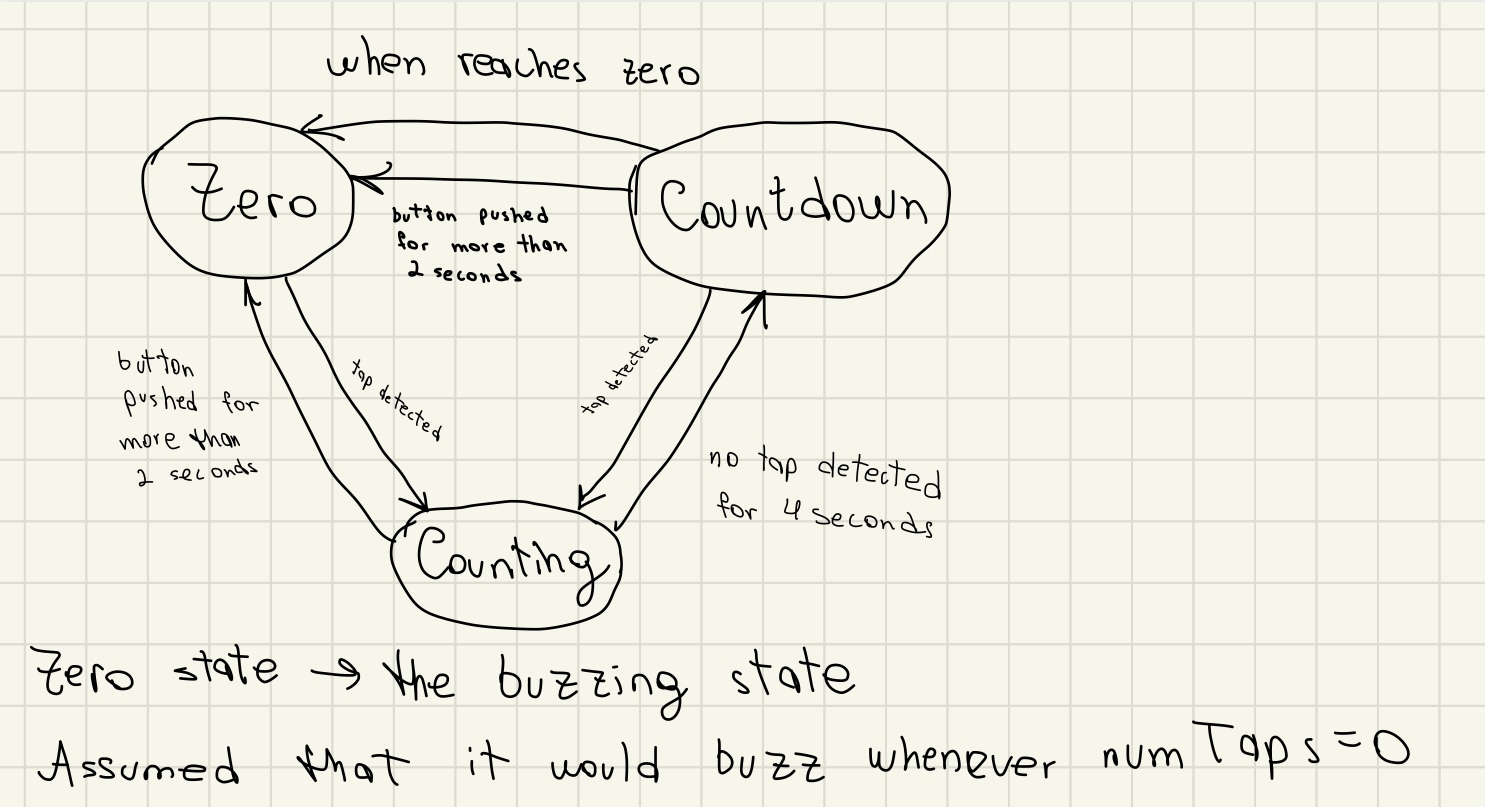 when reaches zero
Zero
Countdown
button pushed
for more than
2 seconds
button
pushed for
more than
2 seconds
tap detected
tap detected
no tap detected
for 4 seconds
Counting
Zero state → the buzzing state
Assumed that it would buzz whenever numTaps=0